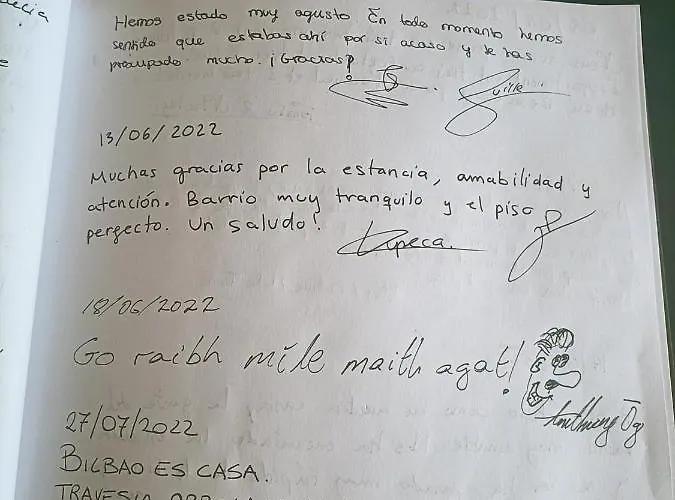 Hemos estado muy agusto. En todo momento hemos
sentido que estabas ahí por si acaso y te has
preocupado mucho. ¡Gracias!
13/06/2022
Muchas gracias por la estancia, amabilidad y
atención. Barrio muy tranquilo y el piso
pergecto. Un saludo!
18/06/2022
Go raibh míle maith agat!
Anthony Óg
27/07/2022
BILBAO ES CASA.
TRAVESIA